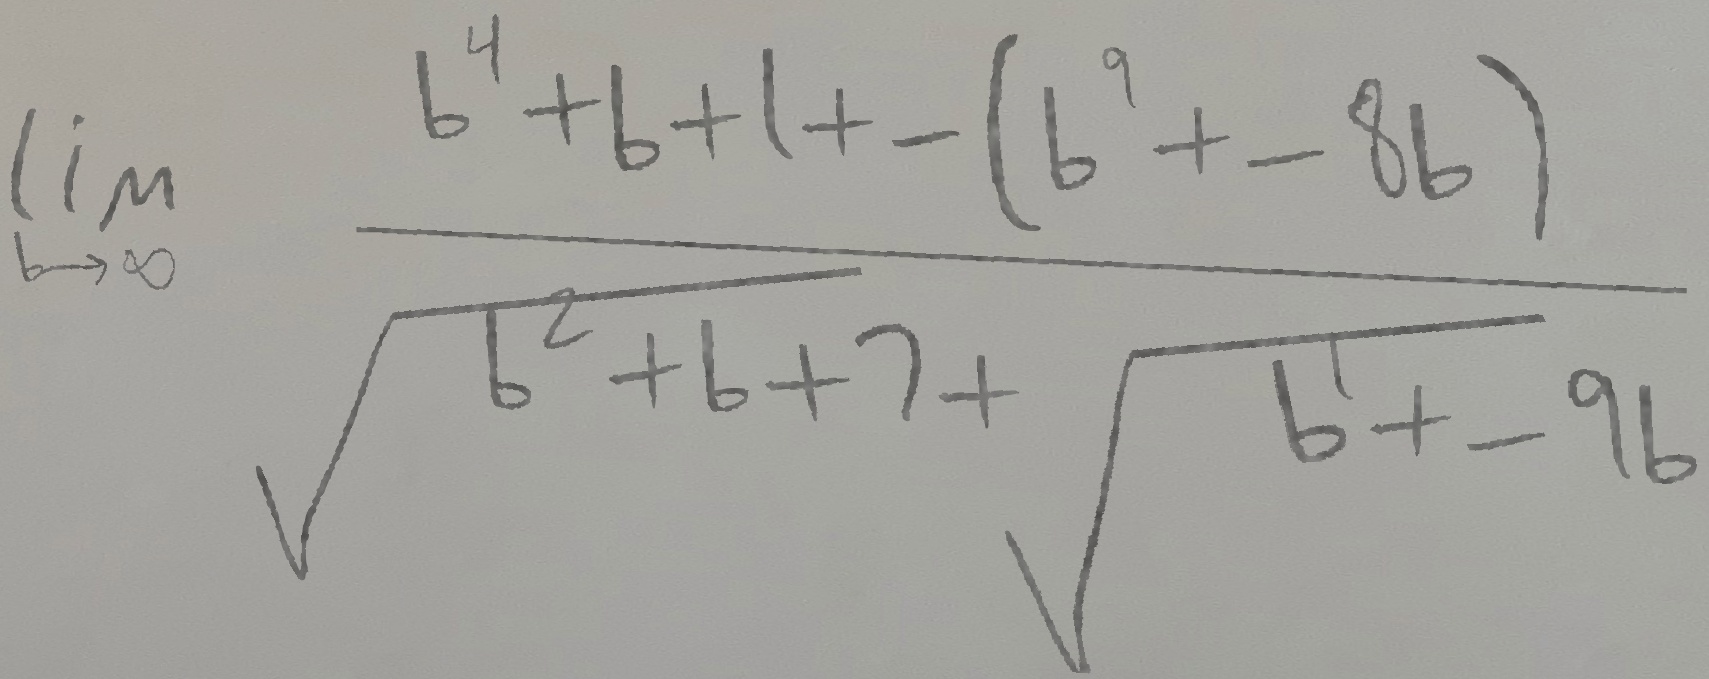 lim b→∞ \frac{b^4+b+1+-(b^9+-8b)}{\sqrt{b^2+b+7}+\sqrt{b^1+-9b}}